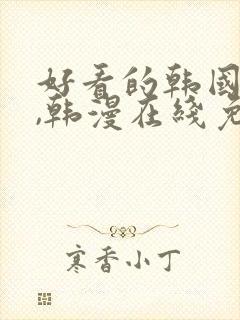 好看的韩国
,韩漫在线免
寒香小丁